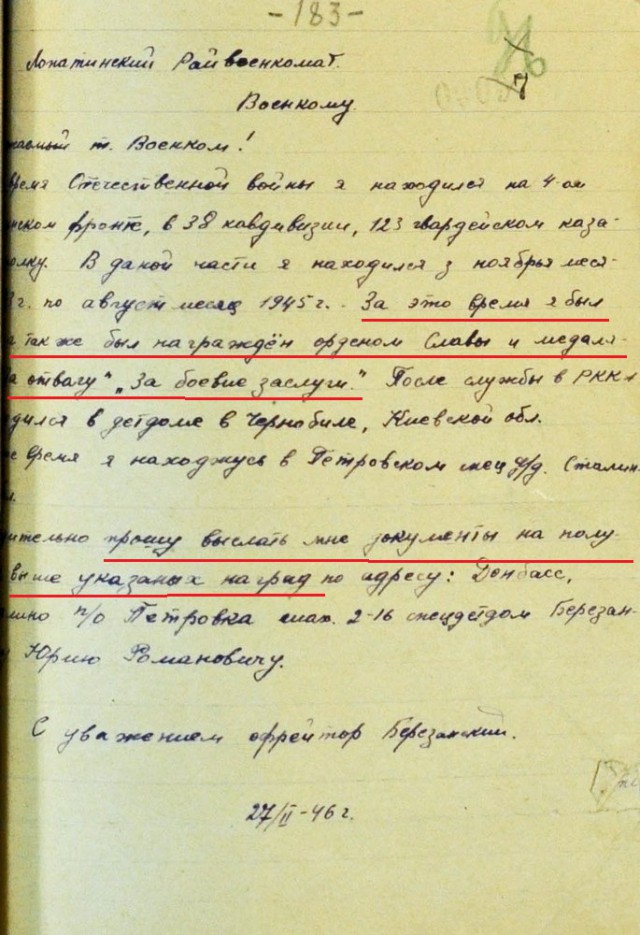 -183-
Лопатинский Райвоенкомат.
Военкому.
т. Военком!
время Отечественной войны я находился на 4-ом
фронте, в 38 кавдивизии, 123 гвардейском каза-
полку. В даной части я находился з ноябрья меся-
г. по август месяц 1945 г. За это время я был
также был награждён орденом Славы и медаля-
отвагу" „За боевие заслуги." После службы в РККА
дился в детдоме в Чернобиле, Киевской обл.
время я находжусь в Петровском спец д/д. Сталин-
л.
прошу выслать мне документы на полу-
выше указаных наград по адресу: Донбасс,
п/о Петровка шах. 2-16 спецдетдом Березан-
Юрию Романовичу.
С уважением ефрейтор Березанский.
27/II-46 г.